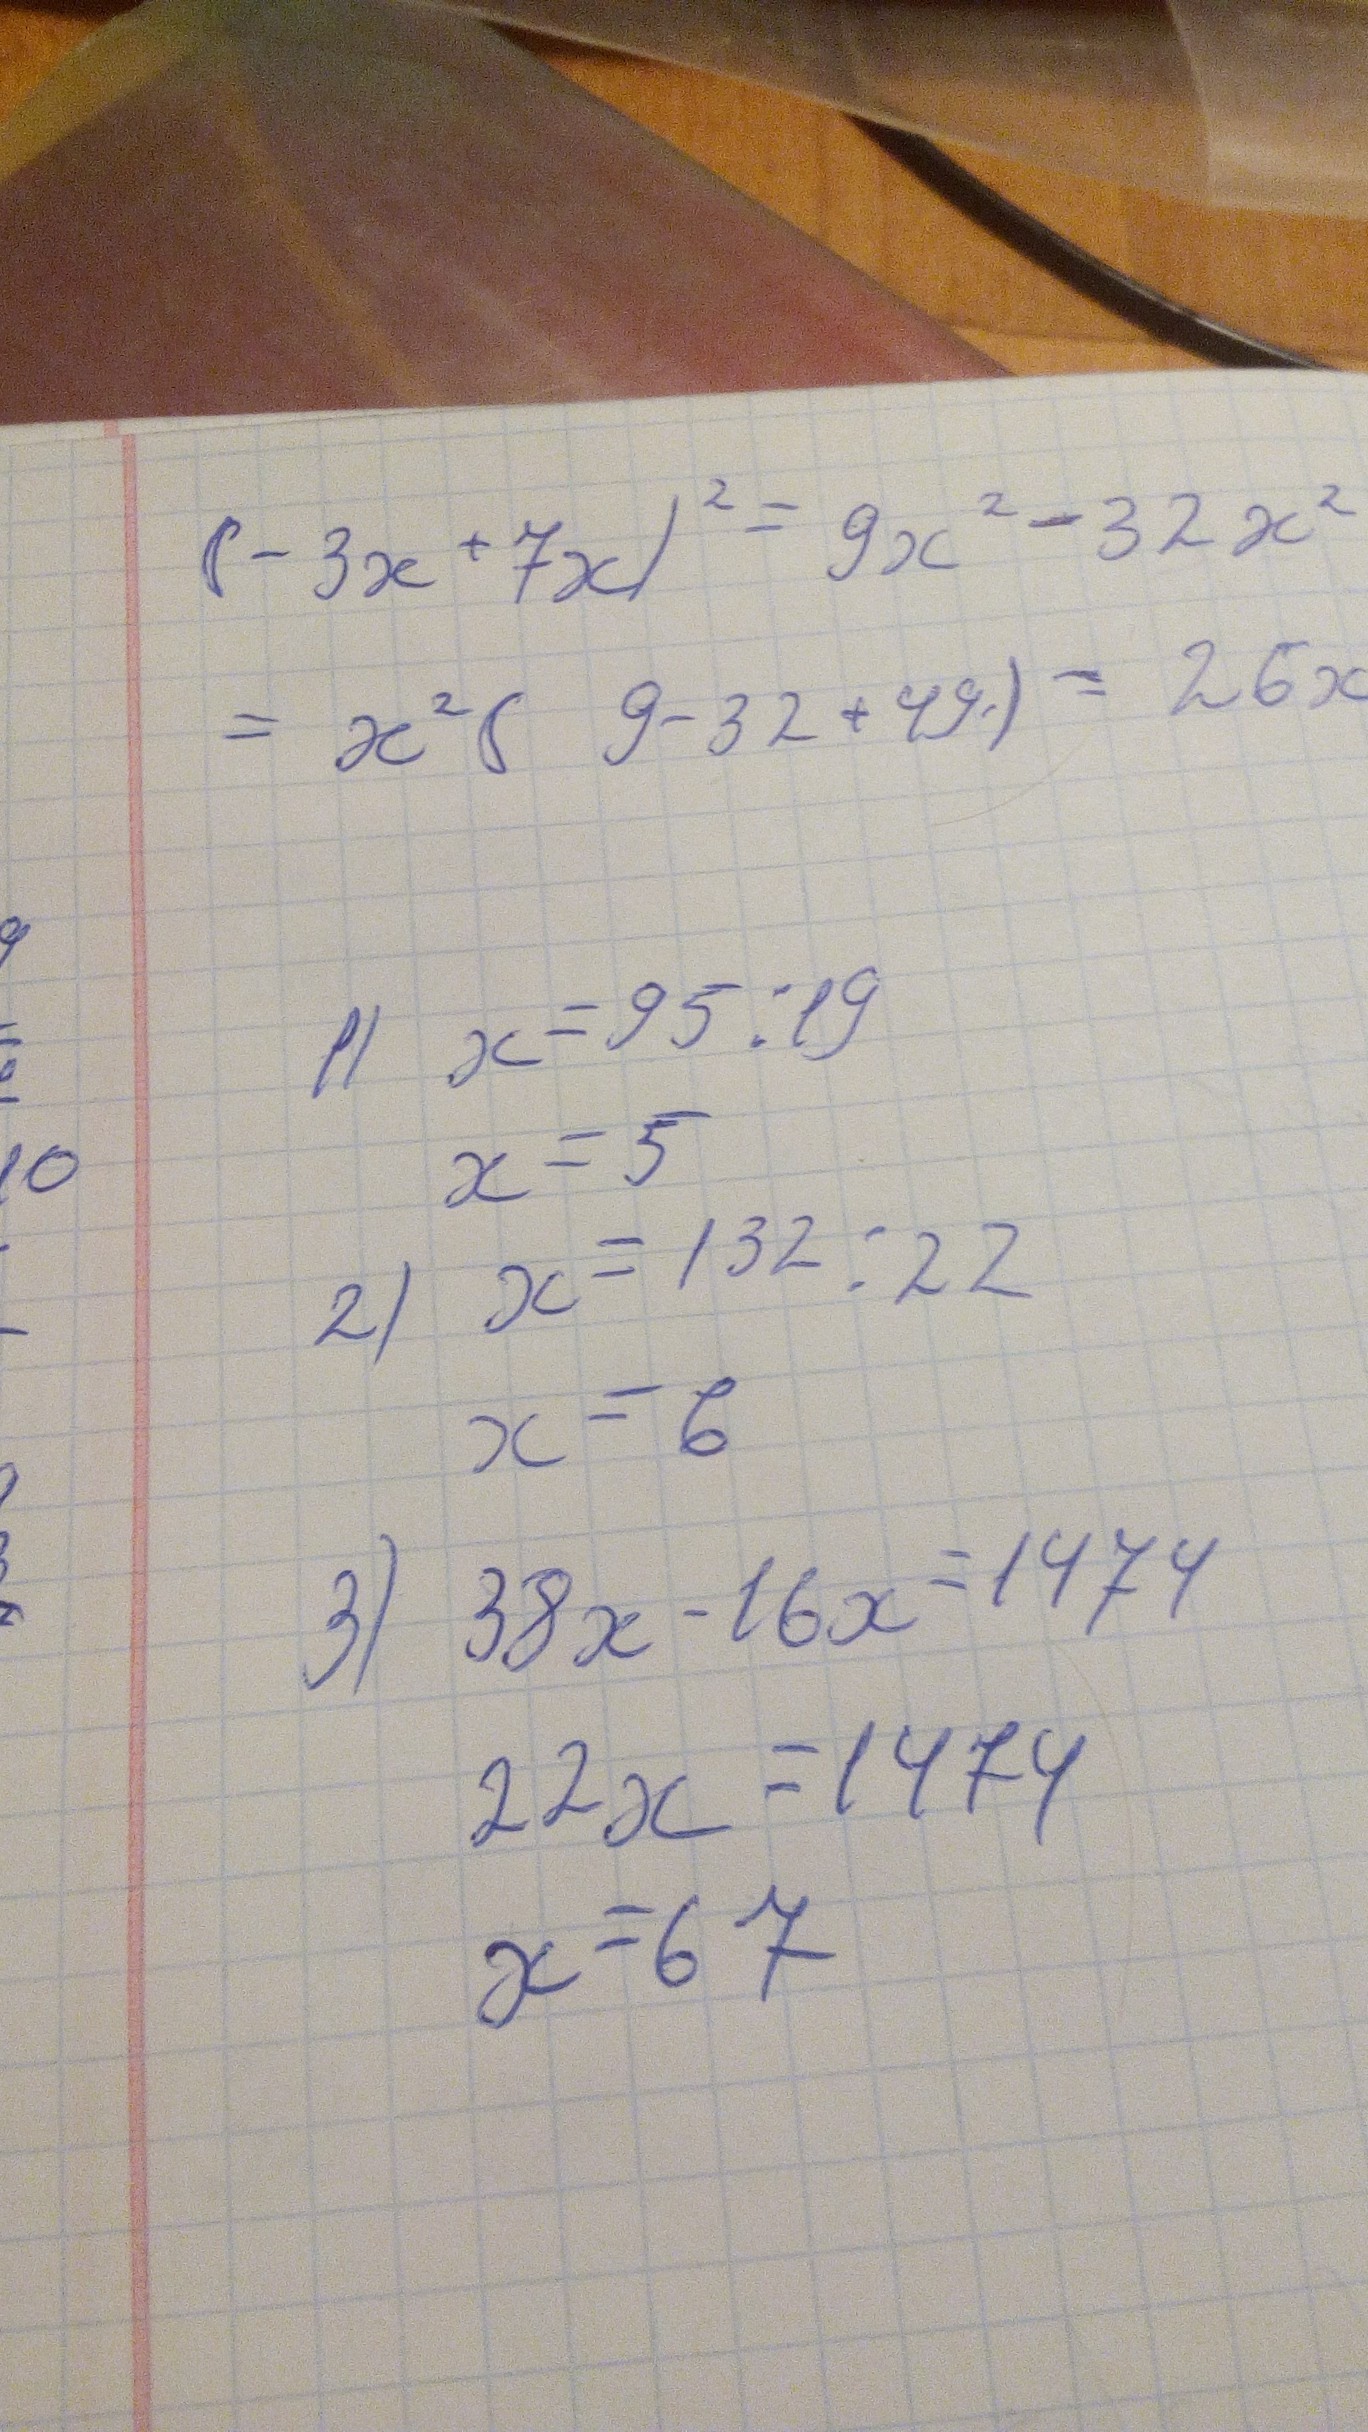 (-3x+7x)²=9x²-32x²
=x²( 9-32+49)=26x
1) x=95:19
x=5
2) x=132:22
x=6
3) 38x-16x=1474
22x=1474
x=67
9
10